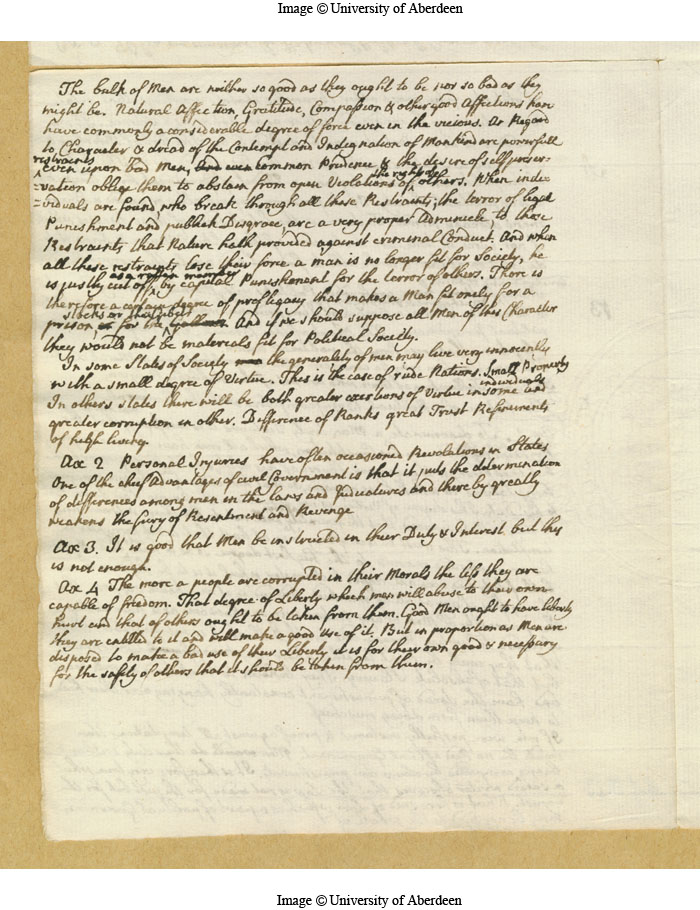 Image © University of Aberdeen
The bulk of Men are neither so good as they ought to be nor so bad as they
might be. Natural Affection, Gratitude, Compassion & other good Affections have
have commonly a considerable degree of force even in the vicious. As Regard
to Character & dread of the Contempt and Indignation of Mankind are powerfull
restraints
even upon bad Men, and even common Prudence & the desire of self preser-
the right of
=vation oblige them to abstain from open Violations of others. When indi
=viduals are found, who break through all these Restraints, the terror of legal
Punishment and publick Disgrace, are a very proper Adminicle, to those
Restraints that Nature hath provided against criminal Conduct. And when
all these restraints lose their force a man is no longer fit for Society, he
as a rotten member
is justly cut off, by capital Punishment for the terror of others. There is
therefore a certain degree of profligacy that makes a Man fit onely for a
stocks or that
prison or for the Gallows. And if we should suppose all Men of this Character
they would not be materials fit for Political Society.
In some States of Society the generality of men may live very innocently
with a small degree of Virtue. This is the case of rude Nations. Small Property
individuals
In others states there will be both greater exertions of Virtue in some and
greater corruption in other. Difference of Ranks great Trust Refinements
of high living.
Ax 2 Personal Injuries have often occasioned Revolutions in States
One of the chief Advantages of civil Government is that it puts the determination
of differences among men in the laws and Judicatures and thereby greatly
weakens the fury of Resentment and Revenge
Ax 3. It is good that Men be instructed in their Duty & Interest but this
is not enough.
Ax 4 The more a people are corrupted in their Morals the less they are
capable of freedom. That degree of Liberty which men will abuse to their own
hurt and that of others ought to be taken from them. Good Men ought to have liberty
they are entitled to it and will make a good use of it. But in proportion as Men are
disposed to make a bad use of their Liberty it is for their own good & necessary
for the safety of others that it should be taken from them.
Image © University of Aberdeen